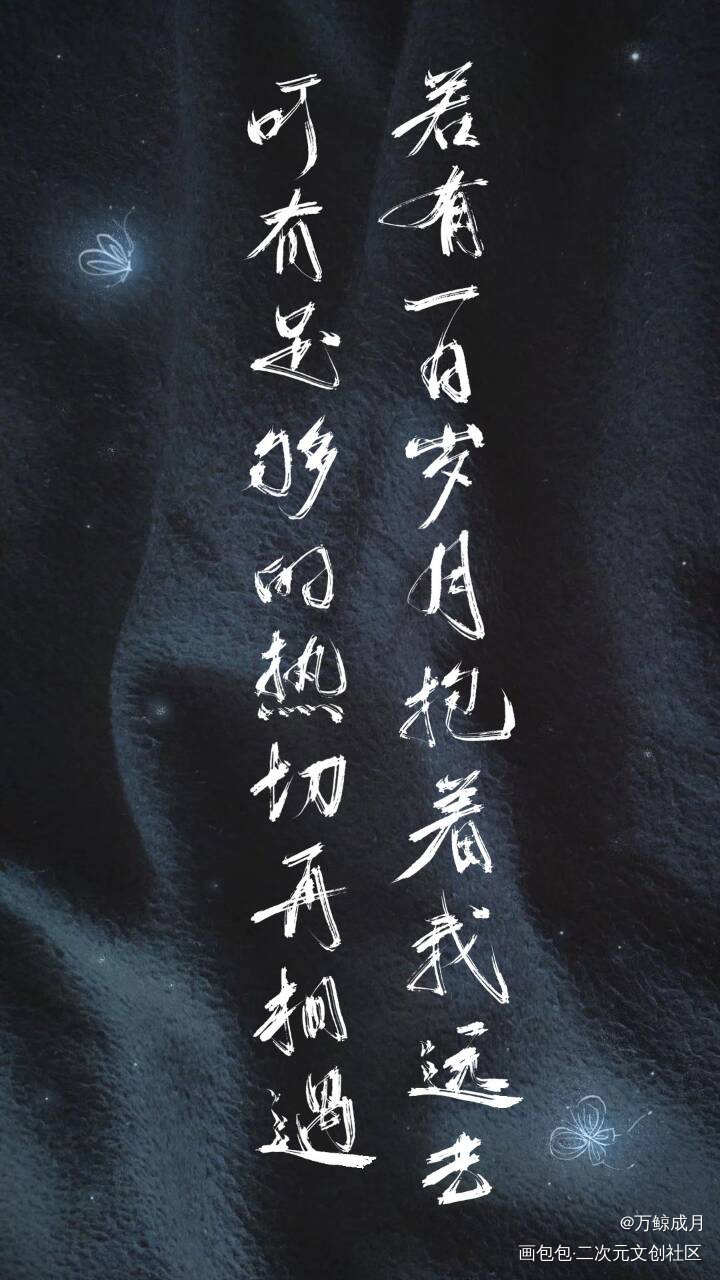 若有一日岁月抱着我远去
可有足够的热切再相遇
@万鲸成月
画包包·二次元文创社区